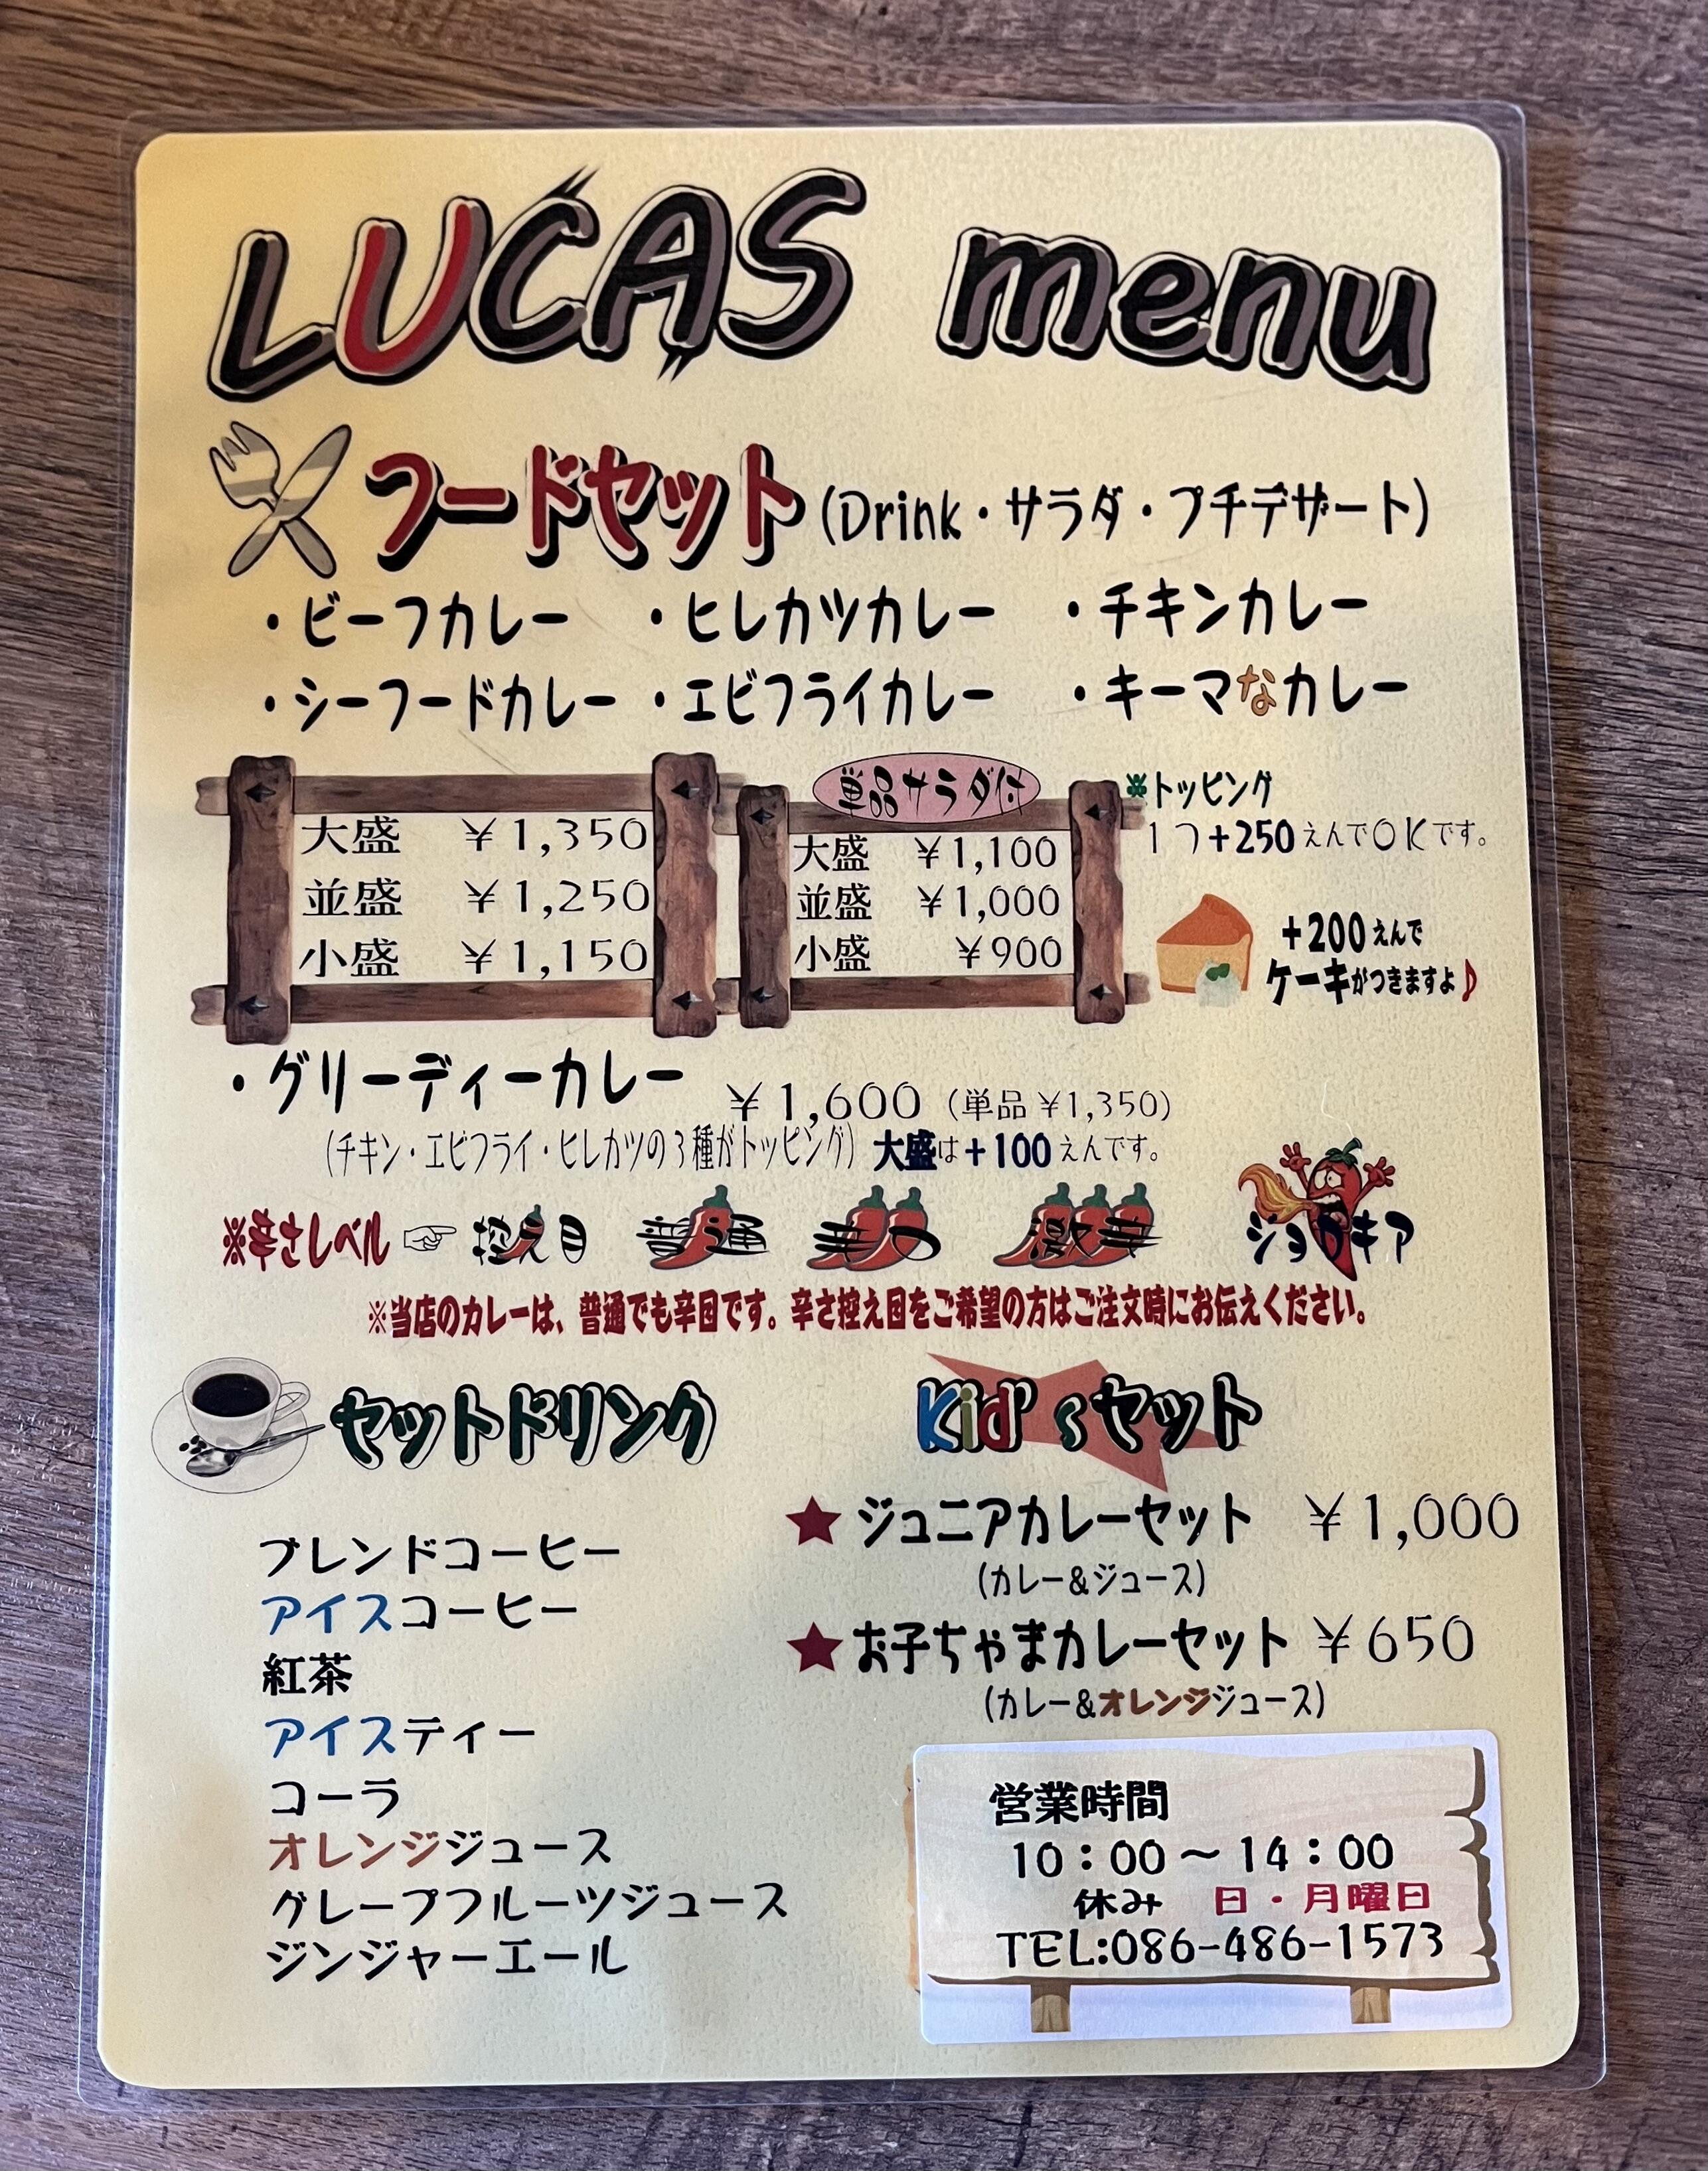 LUCAS menu
フードセット (Drink・サラダ・プチデザート)
・ビーフカレー ・ヒレカツカレー ・チキンカレー
・シーフードカレー ・エビフライカレー ・キーマなカレー
大盛 ¥1,350
並盛 ¥1,250
小盛 ¥1,150
単品サラダ付
大盛 ¥1,100
並盛 ¥1,000
小盛 ¥900
※トッピング
1つ+250えんでOKです。
+200えんで
ケーキがつきますよ♪
・グリーディーカレー ¥1,600 (単品¥1,350)
(チキン・エビフライ・ヒレカツの3種がトッピング) 大盛は+100えんです。
※辛さレベル ☞ 控え目 普通 辛め 激辛 ジョロキア
※当店のカレーは、普通でも辛目です。辛さ控え目をご希望の方はご注文時にお伝えください。
セットドリンク
ブレンドコーヒー
アイスコーヒー
紅茶
アイスティー
コーラ
オレンジジュース
グレープフルーツジュース
ジンジャーエール
Kid'sセット
★ジュニアカレーセット ¥1,000
(カレー&ジュース)
★お子ちゃまカレーセット ¥650
(カレー&オレンジジュース)
営業時間
10:00〜14:00
休み 日・月曜日
TEL:086-486-1573